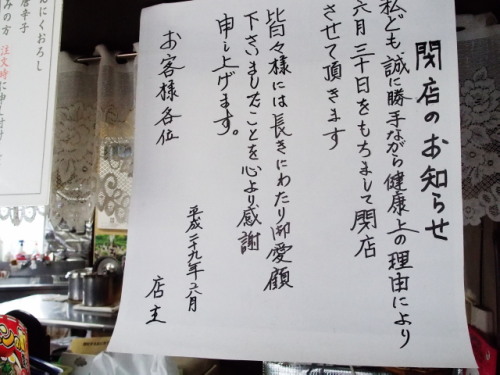 閉店のお知らせ
私ども誠に勝手ながら健康上の理由により
六月三十日をもちまして閉店
させて頂きます
皆々様には長きにわたり御愛顧
下さいましたことを心より感謝
申し上げます。
お客様各位
平成二十九年六月
店主
んにくおろし
唐辛子
みの方
注文時に申し付け